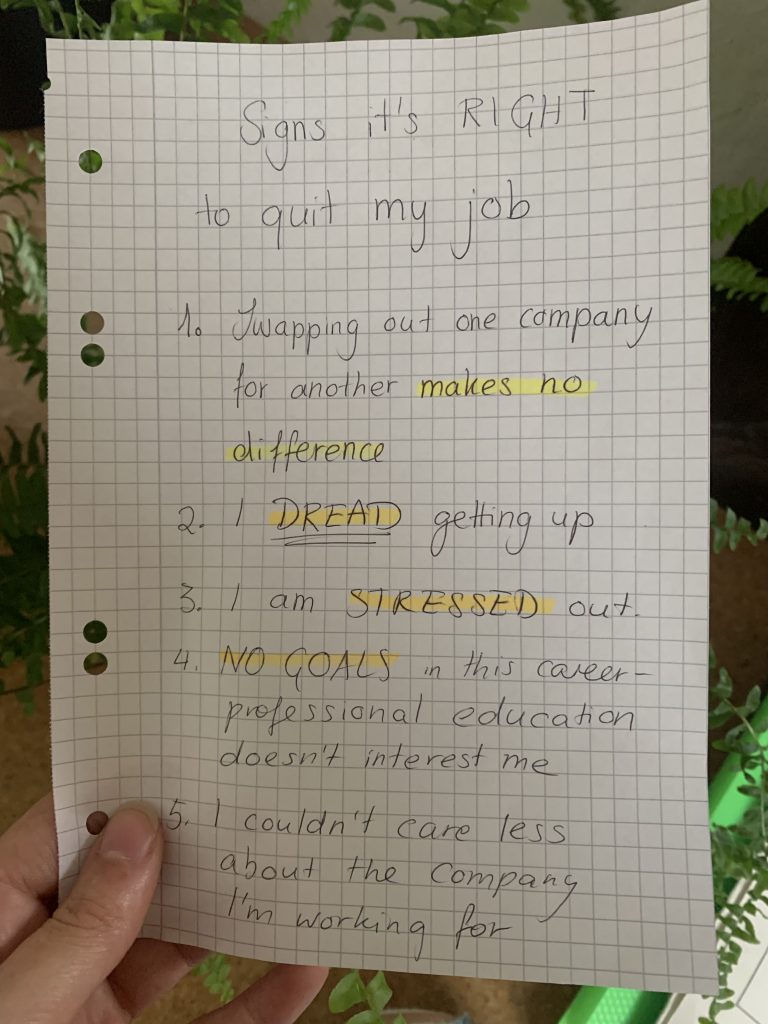 Signs it's RIGHT
to quit my job
1. Swapping out one company
for another makes no
difference
2. I DREAD getting up
3. I am STRESSED out.
4. NO GOALS in this career-
professional education
doesn't interest me
5. I couldn't care less
about the company
I'm working for